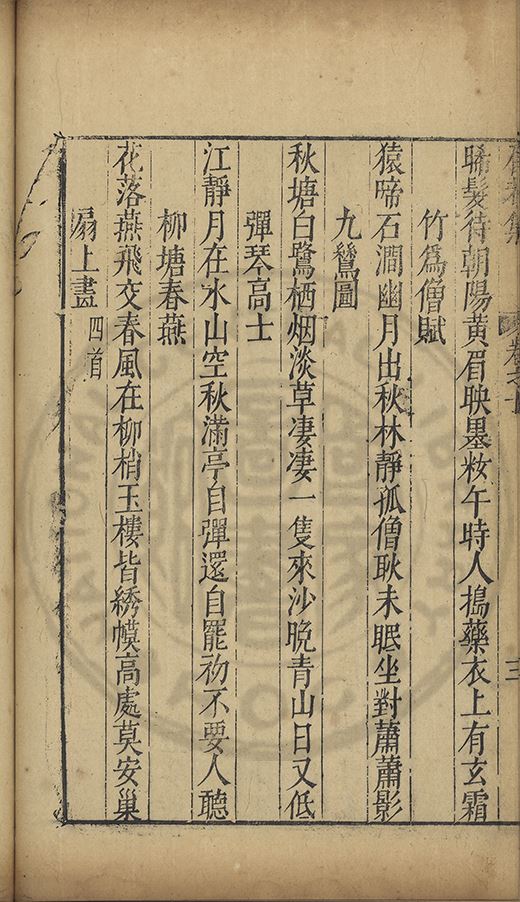 晞髮待朝陽黃眉映墨粧午時人搗藥衣上有玄霜
竹爲僧賦
猿啼石澗幽月出秋林靜孤僧耿未眠坐對蕭蕭影
九鷺圖
秋塘白鷺栖烟淡草凄凄一隻來沙晚青山日又低
彈琴高士
江靜月在水山空秋滿亭自彈還自罷初不要人聽
柳塘春燕
花落燕飛交春風在柳梢玉樓皆綉幙高處莫安巢
扇上畫 四首